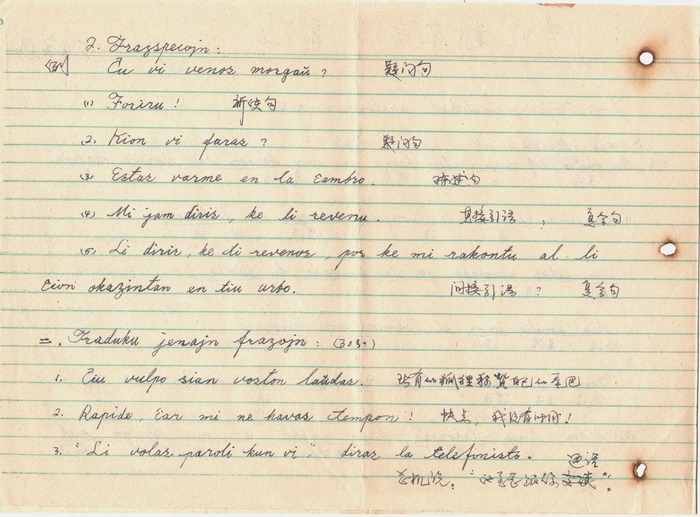 2. Frazspecojn:
例 Ĉu vi venos morgaŭ? 疑问句
(1) Foriru! 祈使句
(2). Kion vi faras? 疑问句
(3) Estas varme en la ĉambro. 陈述句
(4) Mi jam diris, ke li revenu. 直接引语, 复合句
(5) Li diris, ke ŝi revenos, por ke mi rakontu al li
ĉion okazintan en tiu urbo. 间接引语? 复合句
二. Traduku jenajn frazojn: (30%)
1. Ĉiu vulpo sian voston laŭdas. 所有的狐狸称赞自己的尾巴
2. Rapide, ĉar mi ne havas tempon! 快点, 我没有时间!
3. "Li volas paroli kun vi," diras la telefonisto.
"他要跟你交谈".